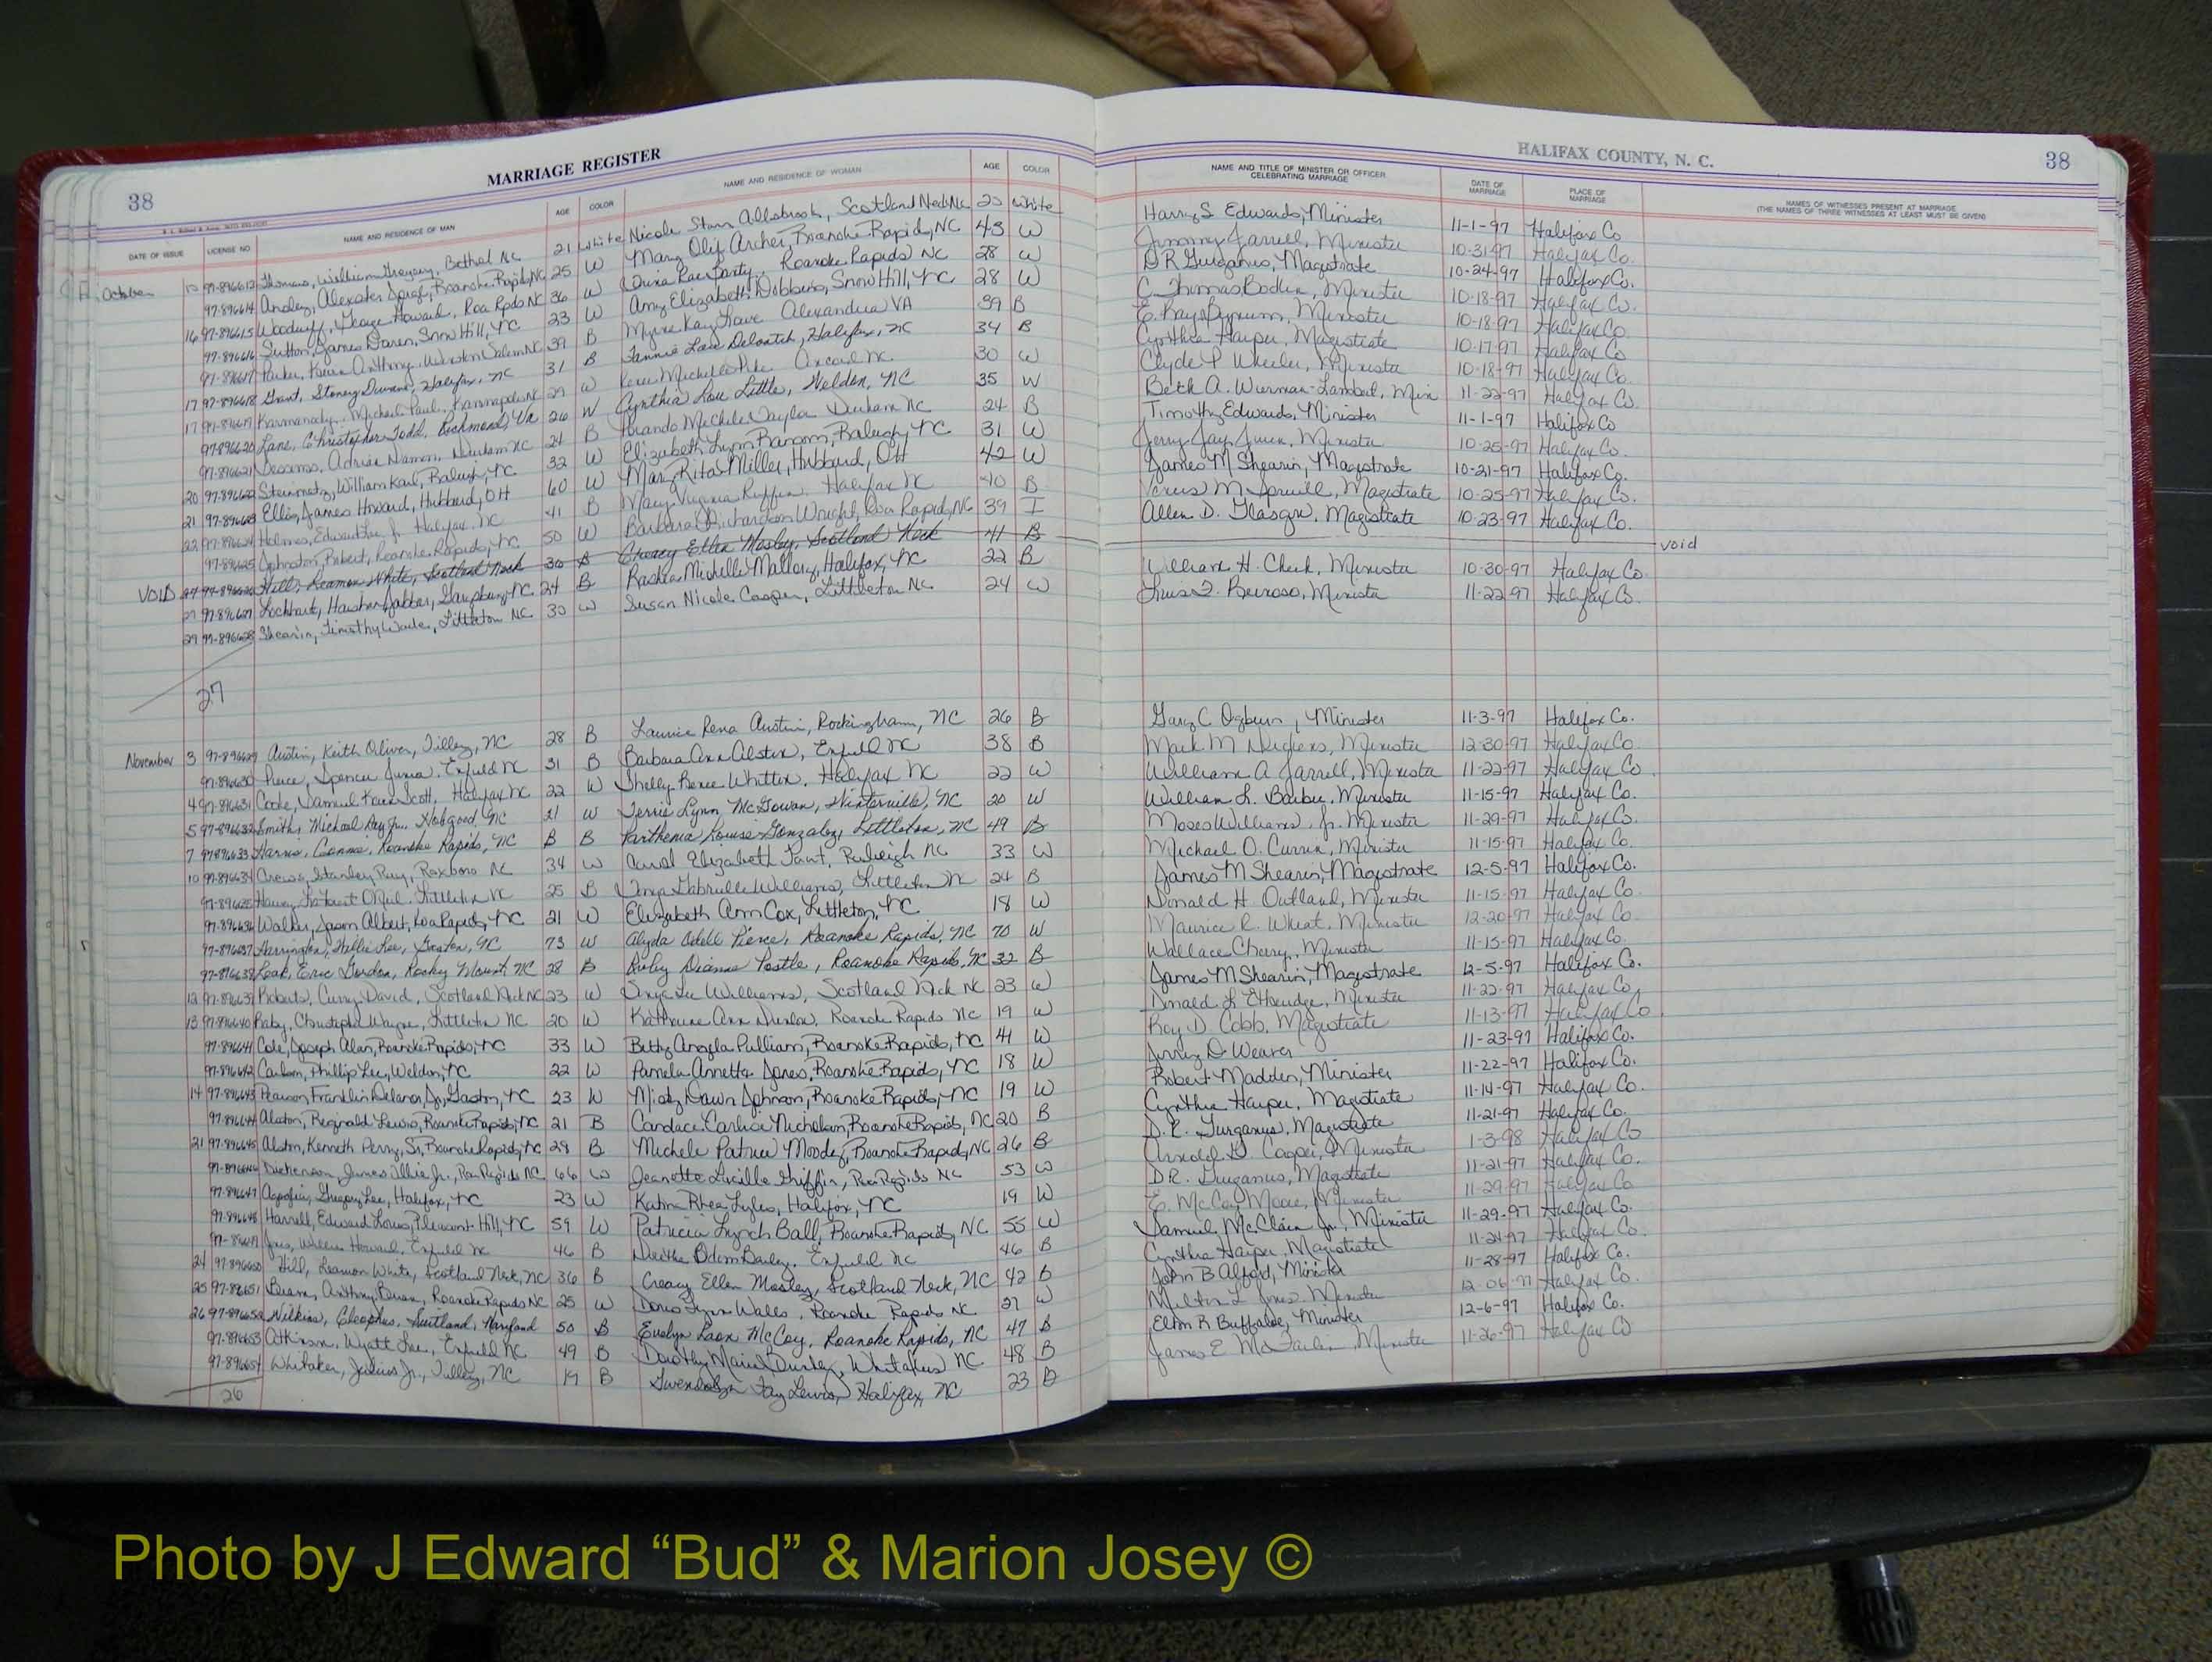 38
MARRIAGE REGISTER
HALIFAX COUNTY, N. C.
38
DATE OF ISSUE LICENSE NO NAME AND RESIDENCE OF MAN AGE COLOR NAME AND RESIDENCE OF WOMAN AGE COLOR NAME AND TITLE OF MINISTER OR OFFICER CELEBRATING MARRIAGE DATE OF MARRIAGE PLACE OF MARRIAGE NAMES OF WITNESSES PRESENT AT MARRIAGE (THE NAMES OF THREE WITNESSES AT LEAST MUST BE GIVEN)
October 97-896613 Thomas, William Gregory, Bethel NC 21 White Nicole Starr Allsbrook, Scotland Neck NC White Harry S Edwards, Minister 11-1-97 Halifax Co
97-896614 Roanoke Rapids, NC 25 W Archer, Roanoke Rapids, NC 43 W Jimmy Jarrell, Minister 10-31-97 Halifax Co.
16 97-896615 Woodruff, George Howard, Roa Rpds NC 36 W Roanoke Rapids NC 28 W D R Gurganus, Magistrate 10-24-97 Halifax Co.
97-896616 Sutton, James Daren, Snow Hill, NC 23 W Amy Elizabeth Dobbins, Snow Hill, NC 28 W C. Thomas Minister 10-18-97 Halifax Co.
97-896617 Parker, Kevin Anthony, Winston Salem NC 39 B Kay Alexandria VA 39 B E. Ray Bynum, Minister 10-18-97 Halifax Co.
17 97-896618 Grant, Stoney Halifax, NC 31 B Fannie Deloatch, Halifax, NC 34 B Cynthia Harper, Magistrate 10-17-97 Halifax Co
17 97-896619 Michael Paul, Kannapolis NC 29 W Michelle NC 30 W Clyde P Wheeler, Minister 10-18-97 Halifax Co.
97-896620 Lane, Christopher Todd, Richmond, VA 26 W Cynthia Lou Little, Weldon, NC 35 W Beth A. Min 11-22-97 Halifax Co.
97-896621 Sessoms, Adrian Damon, Durham NC 24 B Michele Taylor Durham NC 24 B Timothy Edwards, Minister 11-1-97 Halifax Co
20 97-896622 Steinmetz, William Karl, Raleigh, NC 32 W Elizabeth Lynn Ransom, Raleigh, NC 31 W Jerry Jay Minister 10-25-97 Halifax Co.
21 97-896623 Ellis, James Howard, Hubbard, OH 60 W Mary Rita Miller, Hubbard, OH 42 W James M Shearin, Magistrate 10-21-97 Halifax Co.
22 97-896624 Holmes, Edward Jr. Halifax, NC 41 B Mary Virginia Ruffin, Halifax NC 40 B M Spruill, Magistrate 10-25-97 Halifax Co.
97-896625 Johnston, Robert, Roanoke Rapids, NC 50 W Barbara Richardson Wright, Roa Rapids, NC 39 I Allen D. Glasgow, Magistrate 10-23-97 Halifax Co.
VOID 27 97-896626 Hill, Leamon White, Scotland Neck 36 B Creacy Ellen Mosley, Scotland Neck 41 B void
27 97-896627 Lockhart, Garysburg, NC 24 B Michelle Mallory, Halifax, NC 22 B William H. Cheek, Minister 10-30-97 Halifax Co.
29 97-896628 Shearin, Timothy Wade, Littleton NC 30 W Susan Nicole Cooper, Littleton NC 24 W Minister 11-22-97 Halifax Co.
27
November 3 97-896629 Austin, Keith Oliver, Tillery, NC 28 B Laurice Rena Austin, Rockingham, NC 26 B Gary C Ogburn, Minister 11-3-97 Halifax Co.
97-896630 Pierce, Spencer Junior, Enfield NC 31 B Barbara Ann Alston, Enfield NC 38 B Mark M Minister 12-30-97 Halifax Co
4 97-896631 Cooke, Samuel Scott, Halifax NC 22 W Shelly Renee Whitten, Halifax NC 22 W William A Jarrell, Minister 11-22-97 Halifax Co.
5 97-896632 Smith, Michael Ray Jr., Hobgood, NC 21 W Terrie Lynn McGowan, Winterville, NC 20 W William L. Barbee, Minister 11-15-97 Halifax Co.
7 97-896633 Harris, Roanoke Rapids, NC B B Parthenia Louise Gonzalez, Littleton, NC 49 B Moses Williams, Jr. Minister 11-29-97 Halifax Co.
10 97-896634 Crews, Stanley Ray, Roxboro NC 34 W Carol Elizabeth Raleigh NC 33 W Michael O. Currin, Minister 11-15-97 Halifax Co.
97-896635 Littleton NC 25 B Gabrielle Williams, Littleton NC 24 B James M Shearin, Magistrate 12-5-97 Halifax Co.
97-896636 Walker, Jason Albert, Roa Rapids, NC 21 W Elizabeth Ann Cox, Littleton, NC 18 W Donald H. Outland, Minister 11-15-97 Halifax Co
97-896637 Lee, Gaston, NC 73 W Alyda Odell Pierce, Roanoke Rapids, NC 70 W Maurice R. Wheat, Minister 12-20-97 Halifax Co
97-896638 Leak, Eric Gordon, Rocky Mount, NC 28 B Dianne Postle, Roanoke Rapids, NC 32 B Wallace Cherry, Minister 11-15-97 Halifax Co.
12 97-896639 Roberts, Curry David, Scotland Neck NC 23 W Williams, Scotland Neck NC 23 W James M Shearin, Magistrate 12-5-97 Halifax Co.
13 97-896640 Raby, Christopher Wayne, Littleton NC 20 W Katherine Ann Roanoke Rapids NC 19 W Donald L Etheridge, Minister 11-22-97 Halifax Co,
97-896641 Cole, Joseph Alan, Roanoke Rapids, NC 33 W Betty Angela Pulliam, Roanoke Rapids, NC 41 W Roy D. Cobb, Magistrate 11-13-97 Halifax Co
97-896642 Phillip Lee, Weldon, NC 22 W Pamela Annette Jones, Roanoke Rapids, NC 18 W Jerry D Weaver 11-23-97 Halifax Co.
14 97-896643 Pearson, Franklin Delano, Jr, Gaston, NC 23 W Misty Dawn Johnson, Roanoke Rapids, NC 19 W Robert Madden, Minister 11-22-97 Halifax Co.
97-896644 Alston, Reginald Lewis, Roanoke Rapids, NC 21 B Candace Nicholson, Roanoke Rapids, NC 20 B Cynthia Harper, Magistrate 11-14-97 Halifax Co.
21 97-896645 Alston, Kenneth Perry, Sr, Roanoke Rapids, NC 29 B Michele Patrice Moody, Roanoke Rapids, NC 26 B D. R. Gurganus, Magistrate 11-21-97 Halifax Co.
97-896646 Dickerson, James Jr., Roa Rapids NC 66 W Jeanette Lucille Griffin, Roa Rapids NC 53 W Arnold G. Cooper, Minister 1-3-98 Halifax Co
97-896647 Gregory Lee, Halifax, NC 23 W Katina Rhea Lyles, Halifax, NC 19 W D R. Gurganus, Magistrate 11-21-97 Halifax Co.
97-896648 Harrell, Edward Louis, Pleasant Hill, NC 59 W Patricia Lynch Ball, Roanoke Rapids, NC 55 W E. McCoy Moore, Minister 11-29-97 Halifax Co
97-896649 Willie Howard, Enfield NC 46 B Odom Bailey, Enfield NC 46 B Samuel McClain Jr, Minister 11-29-97 Halifax Co.
24 97-896650 Hill, Leamon White, Scotland Neck, NC 36 B Creacy Ellen Mosley, Scotland Neck, NC 42 B Cynthia Harper, Magistrate 11-24-97 Halifax Co.
25 97-896651 Anthony Brian, Roanoke Rapids NC 25 W Doris Lynn Walls, Roanoke Rapids NC 21 W John B Alford, Minister 11-28-97 Halifax Co.
26 97-896652 Wilkins, Cleophus, Suitland, Maryland 50 B Evelyn Leon McCoy, Roanoke Rapids, NC 47 B Milton L Jones, Minister 12-06-97 Halifax Co.
97-896653 Atkinson, Wyatt Lee, Enfield NC 49 B Dorothy Marie Whitakers NC 48 B Elton R Buffaloe, Minister 12-6-97 Halifax Co.
97-896654 Whitaker, Julius Jr., Tillery, NC 19 B Gwendolyn Fay Lewis, Halifax, NC 23 B James E Minister 11-26-97 Halifax Co
26
Photo by J Edward “Bud” & Marion Josey ©